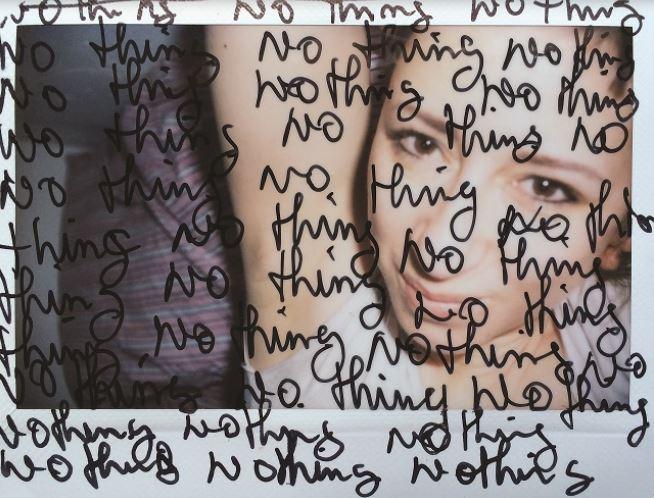 No thing No thing No thing
No thing No thing No thing
No thing No thing No thing
No thing No thing No
No thing No thing No thing
thing No thing No thing
thing No thing No thing
thing No thing Nothing No
No thing No. thing No thing
Nothing Nothing Nothing
Nothing Nothing Nothing